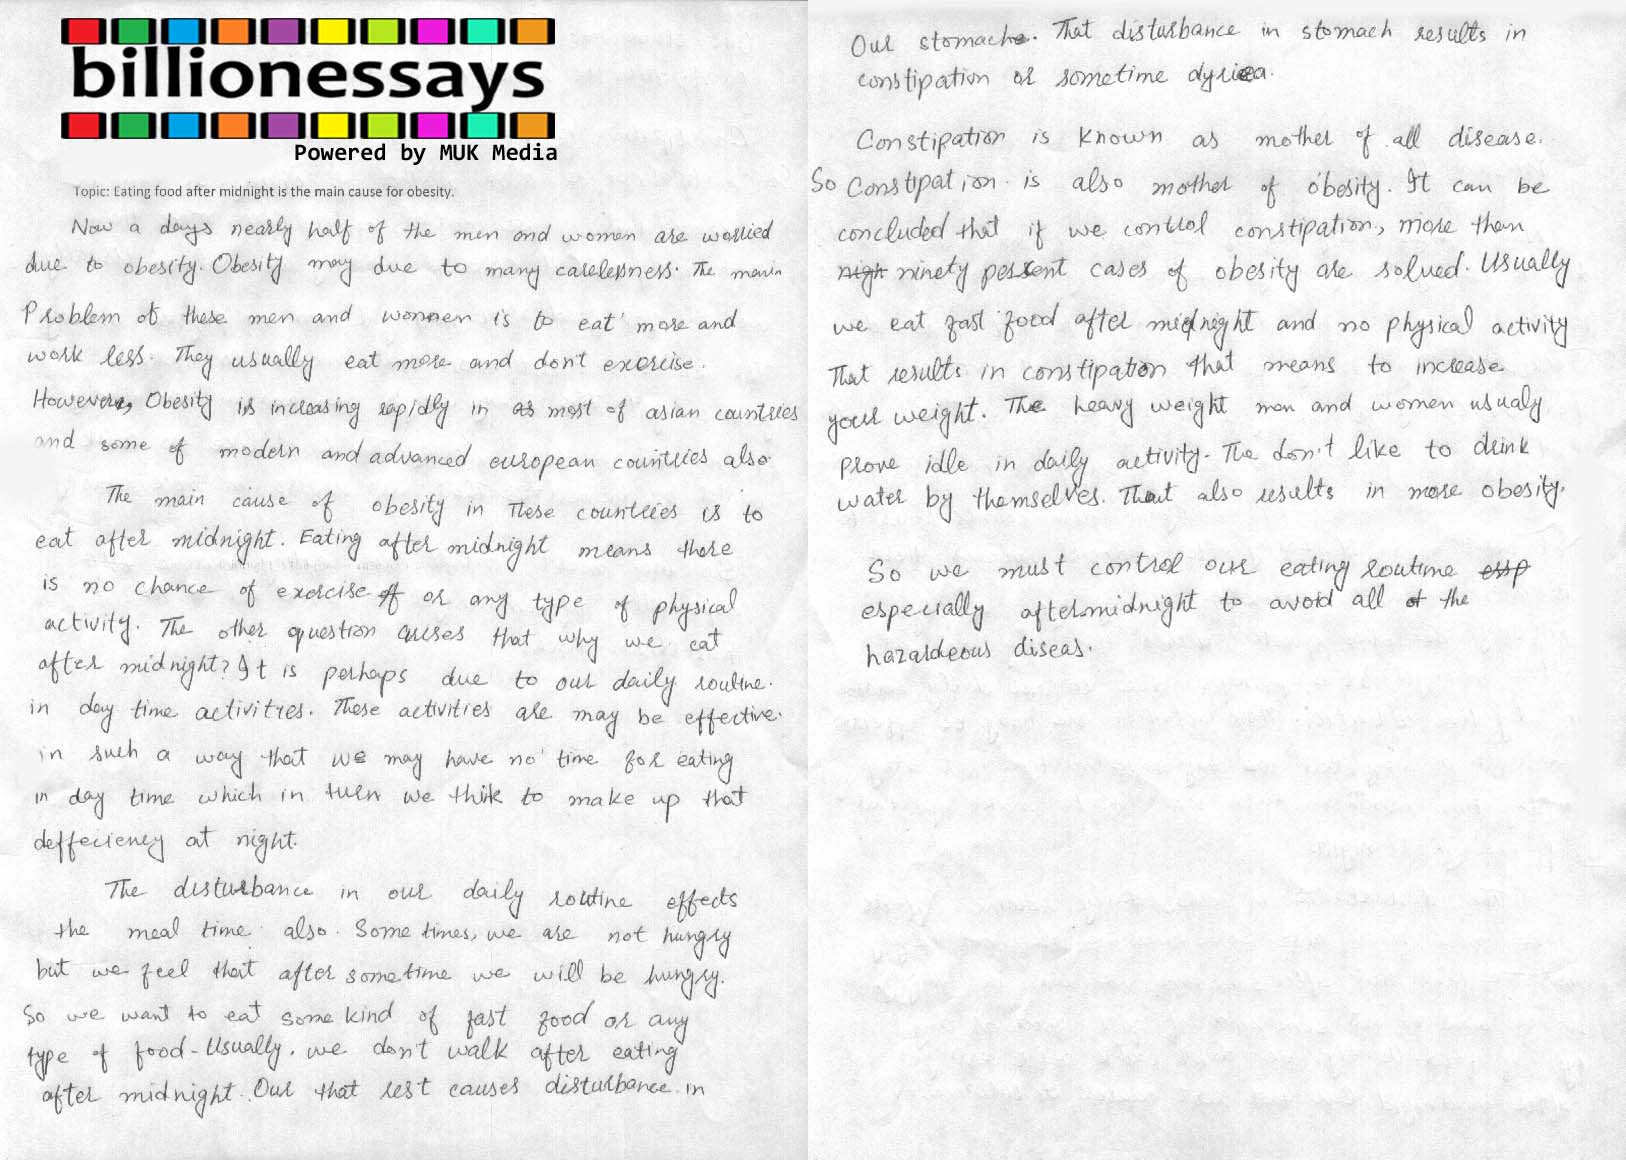 billionessays
Powered by MUK Media
Topic: Eating food after midnight is the main cause for obesity.
Now a days nearly half of the men and women are worried
due to obesity. Obesity may due to many carelessness. The main
Problem of these men and women is to eat more and
work less. They usually eat more and don't exercise.
However, Obesity is increasing rapidly in as most of asian countries
and some of modern and advanced european countries also.
The main cause of obesity in These countries is to
eat after midnight. Eating after midnight means there
is no chance of exercise or any type of physical
activity. The other question arises that why we eat
after midnight? It is perhaps due to our daily routine.
in day time activities. These activities are may be effective.
in such a way that we may have no time for eating
in day time which in turn we think to make up that
deffeciency at night.
The disturbance in our daily routine effects
the meal time also. Some times, we are not hungry
but we feel that after sometime we will be hungry.
So we want to eat some kind of fast food or any
type of food - Usually. we don't walk after eating
after midnight. Our that rest causes disturbance in
Our stomach. That disturbance in stomach results in
constipation or sometime dyriea.
Constipation is known as mother of all disease.
So Constipation is also mother of obesity. It can be
concluded that if we control constipation, more than
nigh ninety percent cases of obesity are solved. Usually
we eat fast food after midnight and no physical activity
That results in constipation that means to increase
your weight. The heavy weight men and women usualy
prove idle in daily activity. The don't like to drink
water by themselves. That also results in more obesity.
So we must control our eating routime essp
especially aftermidnight to avoid all of the
hazardeous diseas.